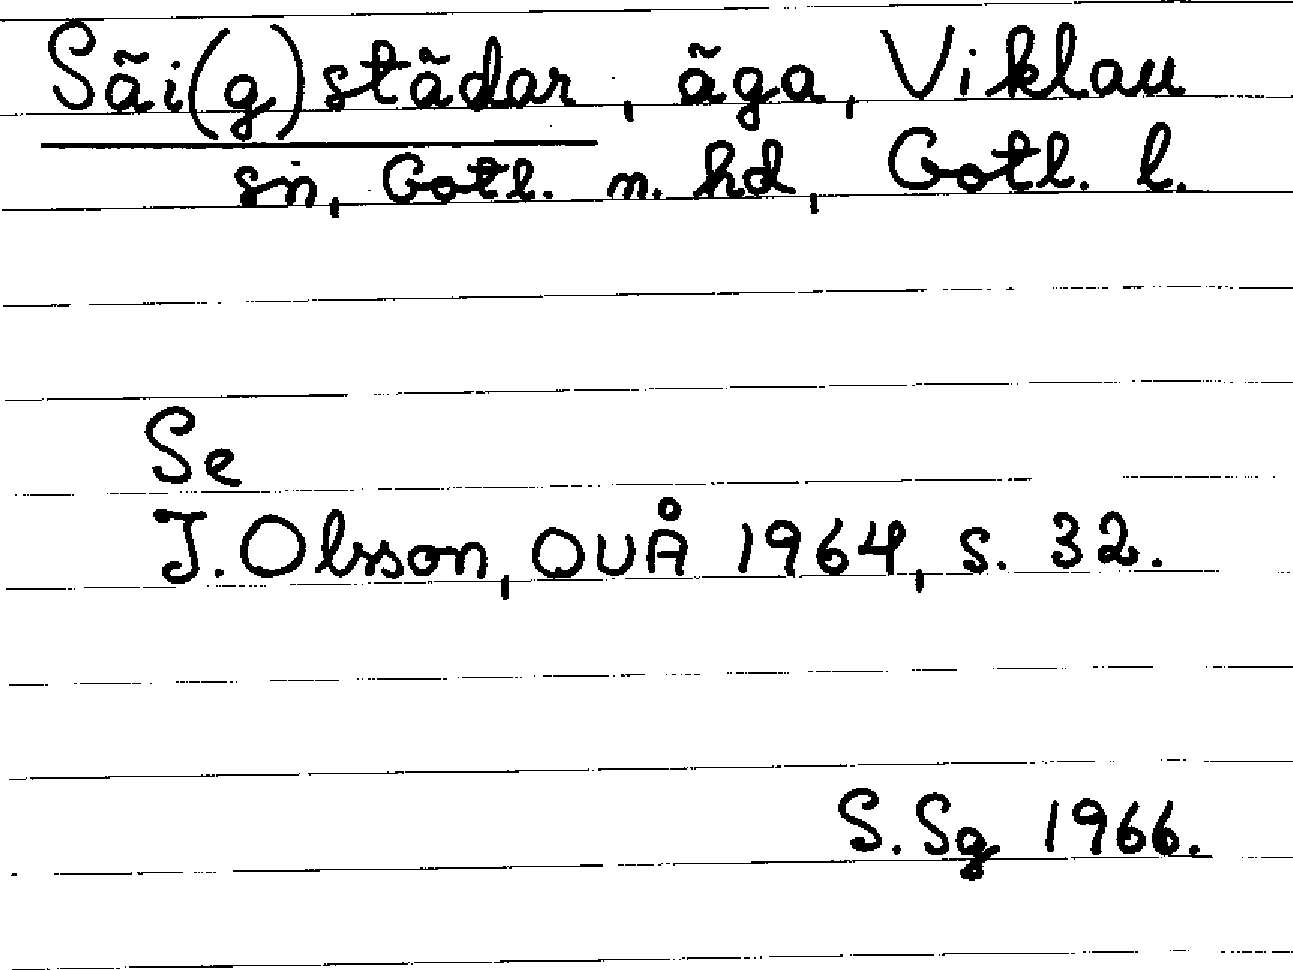 Sãi(g)städar, äga, Viklau
sn, Gotl. n. hd, Gotl. l.
Se
J. Olsson, OUÅ 1964, s. 32.
S. Sg 1966.